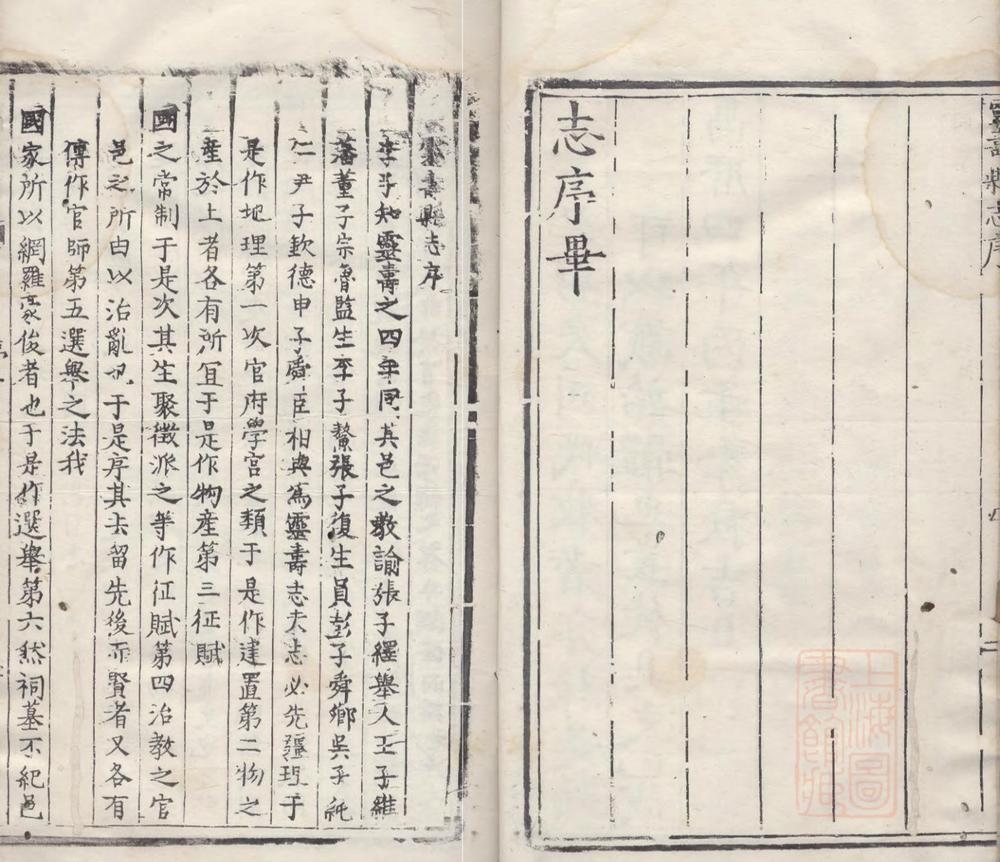 靈壽縣志序
志序畢
二
上海圖書館藏
靈壽縣志序
李子知靈壽之四年同其邑之教諭張子纙舉人王子維
藩董子宗魯監生李子鰲張子復生員彭子舜鄉吳子
仁尹子欽德申子舜臣相與爲靈壽志夫志必先疆理于
是作地理第一次官府學宮之類于是作建置第二物之
産於土者各有所宜于是作物産第三征賦
國之常制于是次其生聚徵派之等作征賦第四治教之官
邑之所由以治亂也于是序其去留先後而賢者又各有
傳作官師第五選舉之法我
國家所以網羅豪俊者也于是作選舉第六然祠墓不紀邑